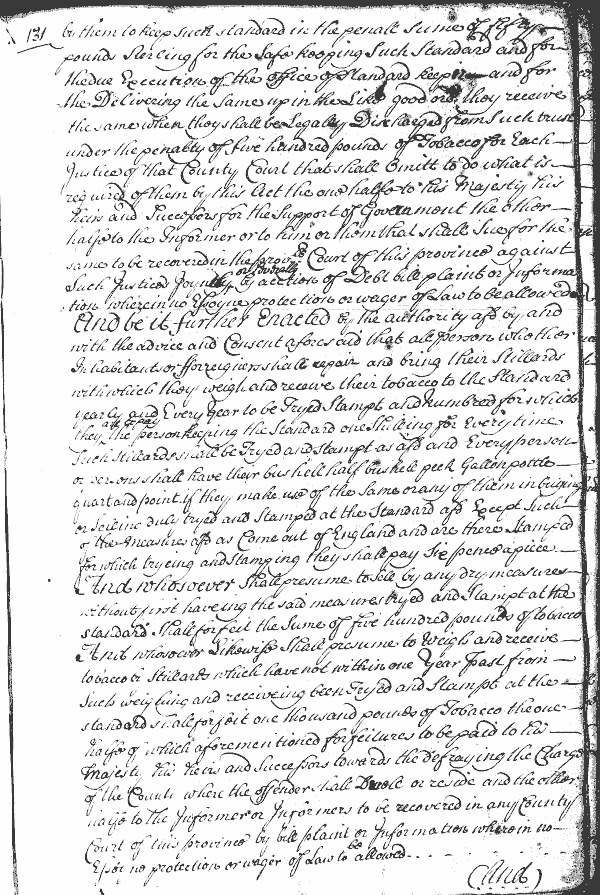 131 by them to keep such standard in the penall Sume of fifty
pound sterling for the Safe keeping Such Standard and for
the due Execution of the office of Standard keeping and for
the Delivering the same up in the Like good ord they receive
the same when they shall be Legally Discharged from Such trust
under the penalty of five hundred pounds of Tobacco for Each
Justice of that County Court that shall Omitt to do what is
required of them by this Act the one halfe to his Majesty his
heirs and Successors for the Support of Government the other
halfe to the Informer or to him or them that shall Sue for the
same to be recovered in the provin Court of this province against
Such Justices Joyntly or severally by action of Debt bill plaint or Informa
tion wherein no Essoyne protection or wager of Law to be allowed
And be it further Enacted by the authority afd by and
with the advice and Consent aforesaid that all persons whether
Inhabitants or fforreigners shall repair and bring their Stillards
with which they weigh and receive their tobacco to the Standard
yearly and Every Year to be Tryed Stampt and Numbred for which
they shall pay the person keeping the Standard one Shilling for Every time
Such Stillards shall be Tryed and Stampt as afd and Every person
or persons shall have their bushell half bushell peck Gallon pottle
quart and point if they make use of the Same or any of them in buying
or Selling duly tryed and Stamped at the Standard afd Except Such
of the measures afd as Come out of England and are there Stamped
for which tryeing and Stamping they shall pay Six pence apiece
And whosoever Shall presume to Sell by any dry measures
without first haveing the said measures tryed and Stampt at the
standard Shall forfeit the Sume of five hundred pounds of tobacco
And whosoever Likewise Shall presume to Weigh and receive
tobacco Stillards which have not within one Year Past from
Such weighing and receiveing been Tryed and Stampt at the
standard shall forfeit one thousand pounds of Tobacco the one
halfe of which aforementioned forfeitures to be paid to his
Majesty his heirs and Successors towards the Defraying the Charge
of the County where the offender shall Dwele or reside and the other
halfe to the Informer or Informers to be recovered in any County
Court of this province by bill plaint or Information wherein no
Essoi no protection or wager of Law to be allowed
(And)